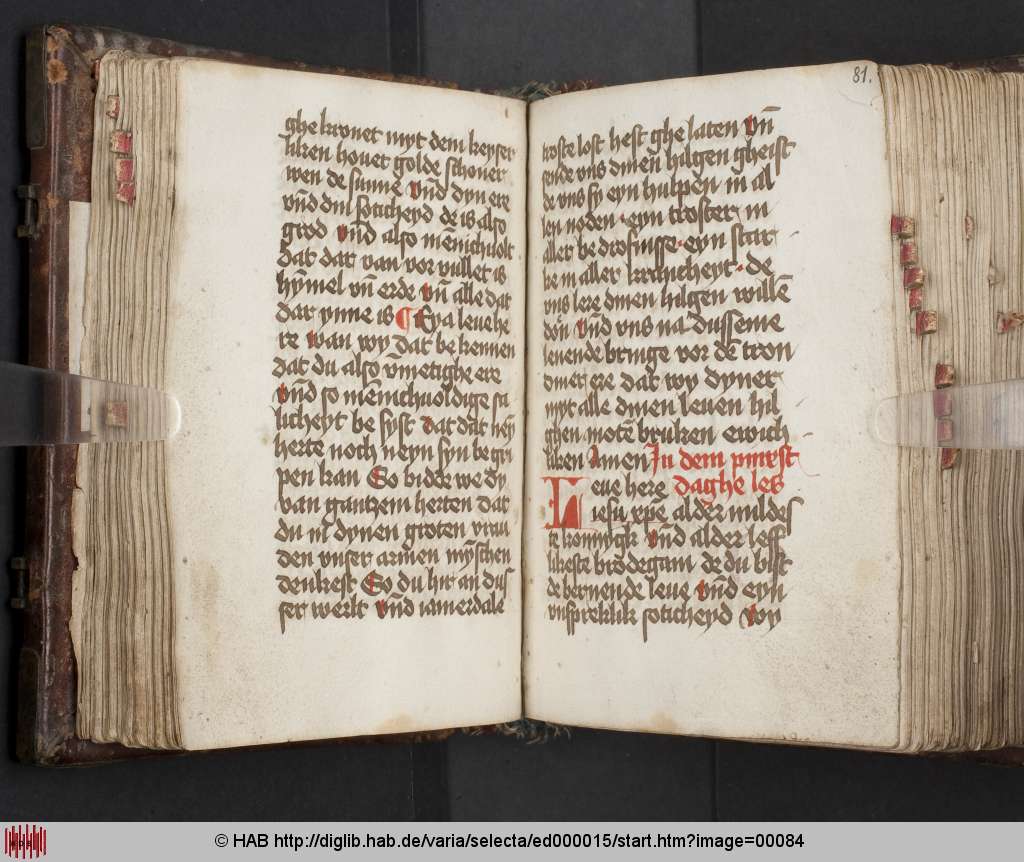 ghe kronet myt dem keyser
liken houet golde schoner
wen de sunne vn̄d dyn ere
vn̄d din soticheyd de is also
grod vn̄d also mēnichuolt
dat dar van vor vullet is
hȳmel vn̄ erde vn̄ alle dat
dar ynne is ¶ Eya leue he
re wan wy dat be kennen
dat du also vnietighe ere
vn̄d so mēnichuoldige sa
licheyt be syst dat dat neȳ
herte noch neyn syn be gri
pen kan So bidde we dy
van gantzem herten dat
du in dynen groten vrau
den vnser armen mȳschen
denkest So du hir an dus
ser werlt vn̄d iamerdale
81.
troste lost hest ghe laten vn̄
sende vns dinē hilgen gheist
de vns sy eyn hulpen in al
len noden · eyn troster in
aller be drofnisse · eyn star
ke in aller krancheyt · de
vns lere dinen hilgen willē
don vn̄d vns na dusseme
leuende bringe vor dē tron
diner ere dat wy dyner
myt alle dinen leuen hil
ghen motē bruken ewich
liken Amen In dem pinxst
Leue here daghe les
iesu xpē alder mildes
te konnygk vn̄d alder leff
likeste brodegam de du bist
de bernende leue vn̄d eyn
vnspreklik soticheyd wy
© HAB http://diglib.hab.de/varia/selecta/ed000015/start.htm?image=00084